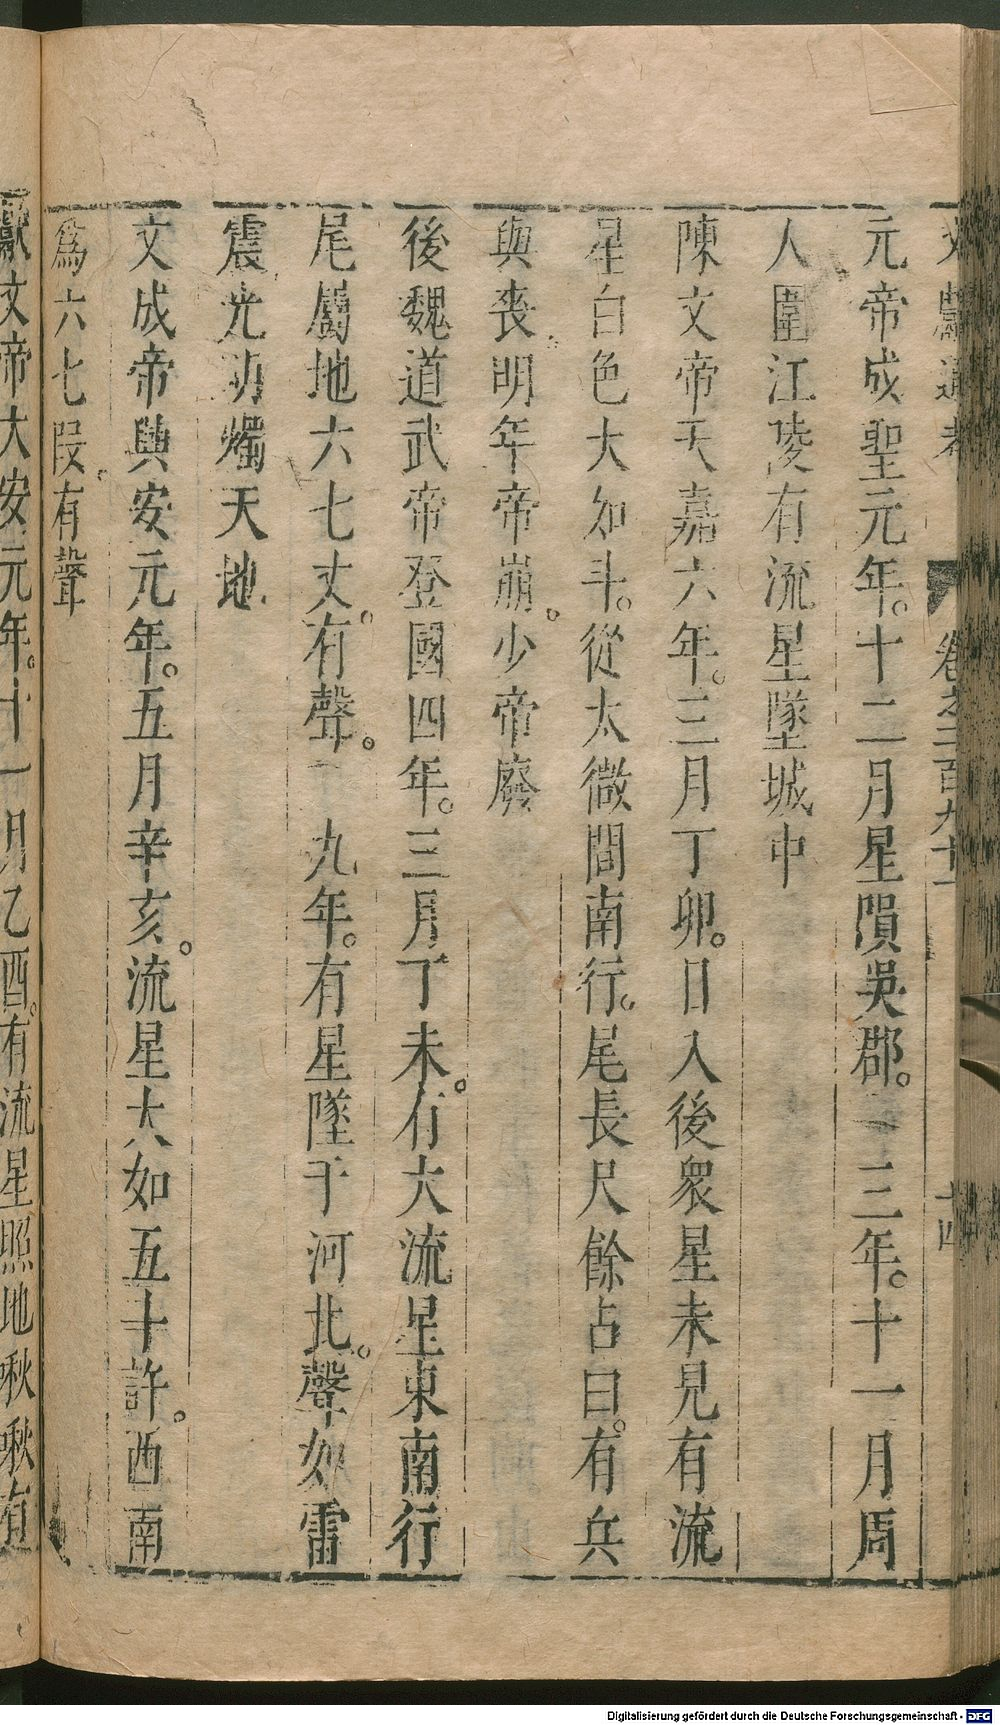 文獻通考 卷之二百九十一 十四
元帝成聖元年。十二月星隕吳郡。 三年。十一月周
人圍江陵有流星墜城中
陳文帝天嘉六年。三月丁卯。日入後衆星未見有流
星白色大如斗。從太微間南行。尾長尺餘占曰。有兵
與喪明年帝崩。少帝廢
後魏道武帝登國四年。三月丁未。有大流星東南行
尾屬地六七丈。有聲。 九年。有星墜于河北。聲如雷
震光明燭天地
文成帝興安元年。五月辛亥。流星大如五十許。西南
爲六七段有聲
獻文帝大安元年。十一月乙酉。有流星照地啾啾有
Digitalisierung gefördert durch die Deutsche Forschungsgemeinschaft - DFG